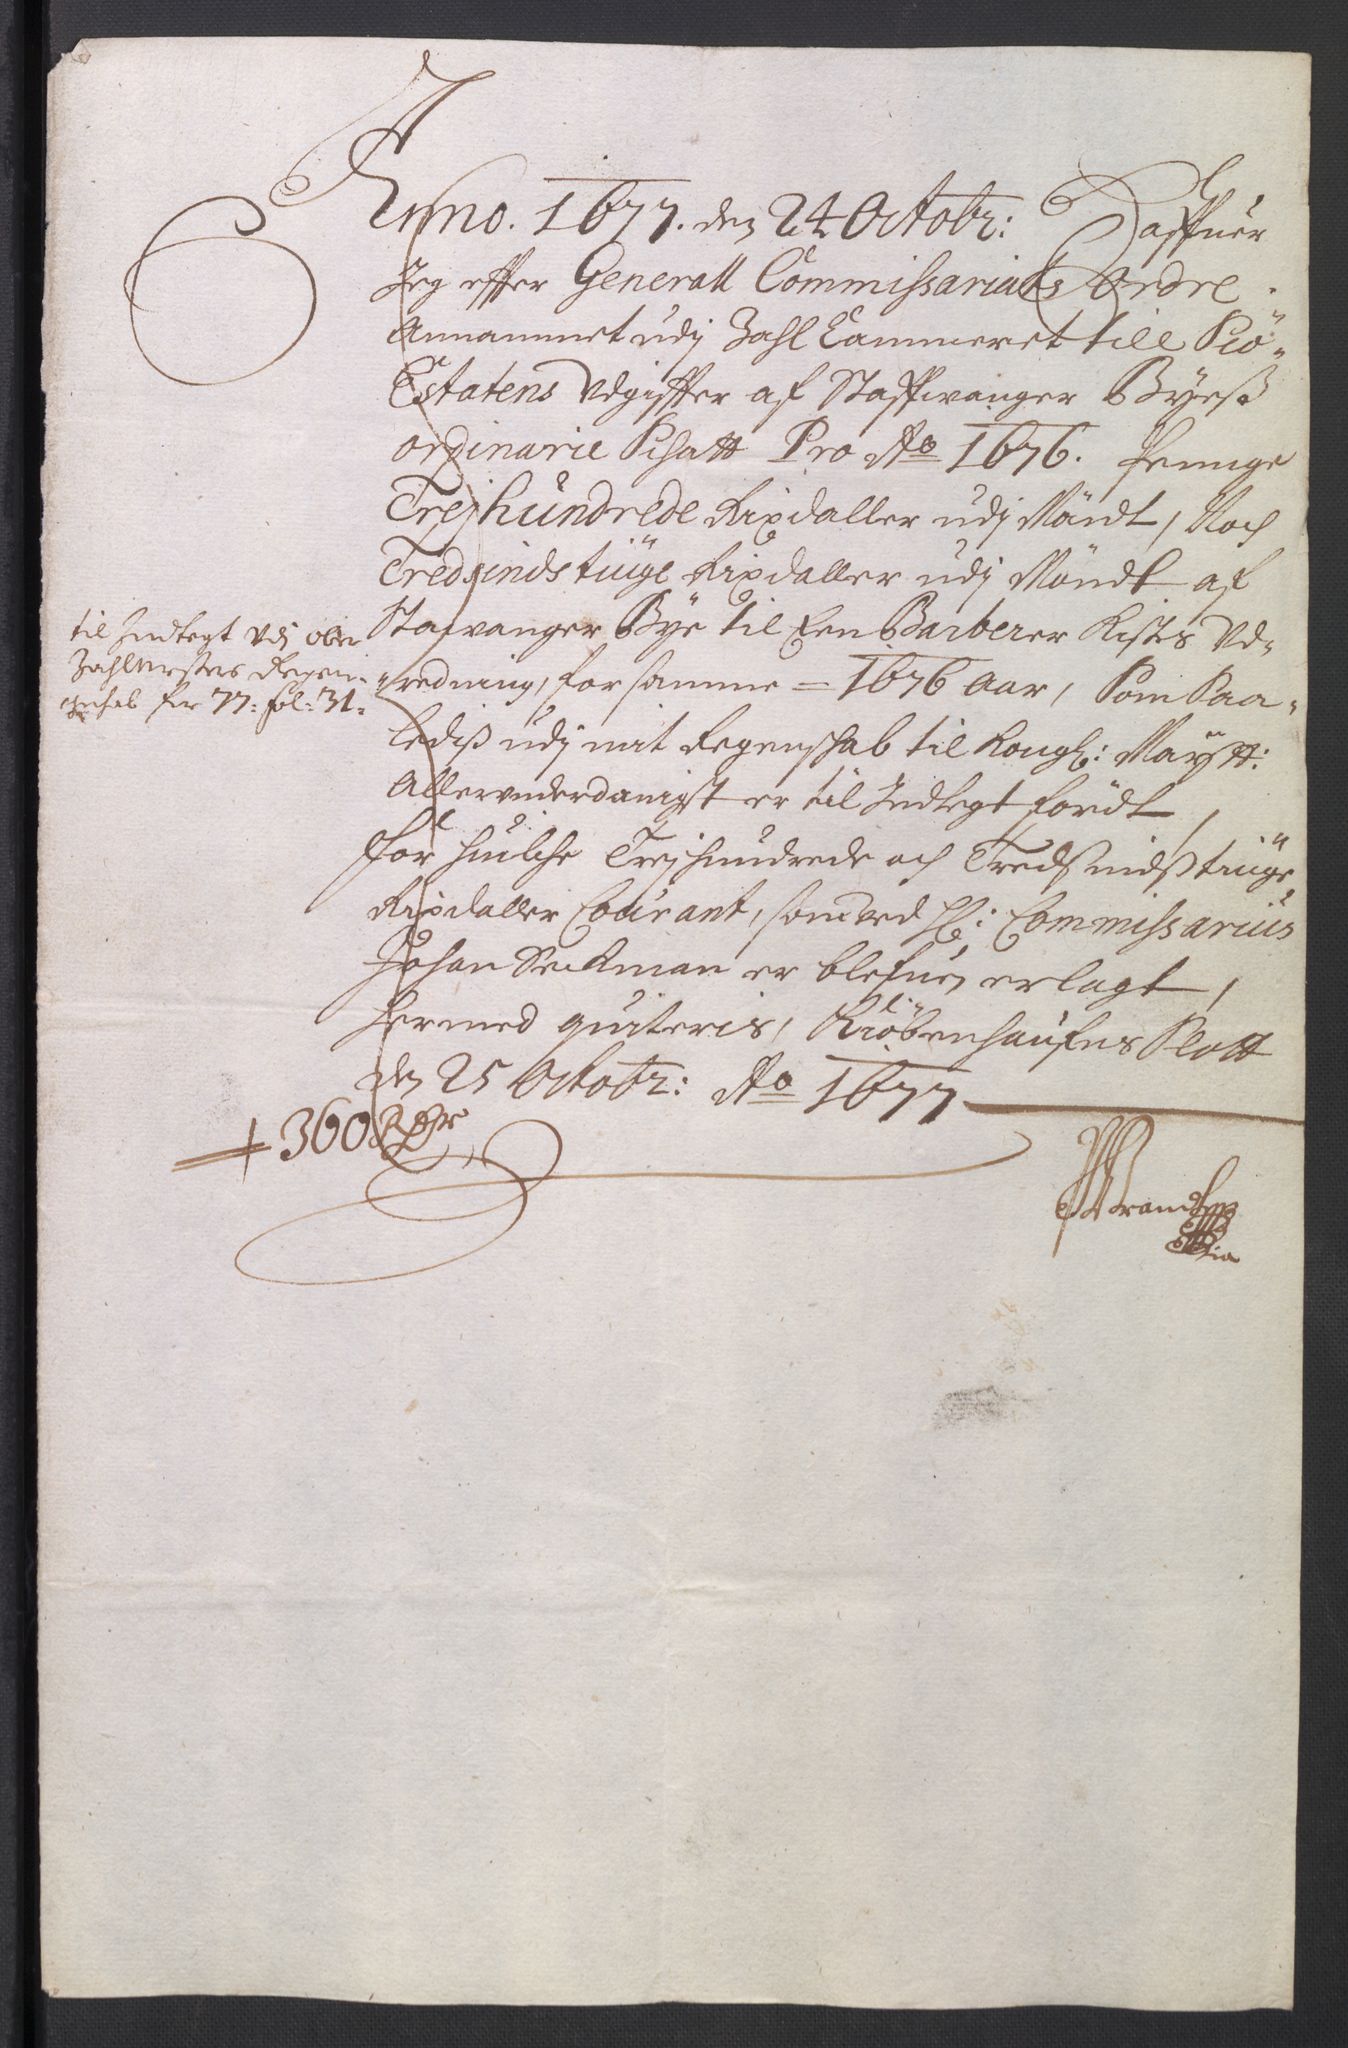 Anno. 1677. den 24 Octobr: Haffuer
Jeg effter Generall Commissariats Ordre
Annammet udj Zahl Cammeret till Siö-
Estatens Vdgiffter af Staffwanger Byeß
ordinarie Schatt Pro Ao 1676. penninge
Trejhundrede Rixdaller udj Möndt, Noch
Tredsindstiüge Rixdaller udj Möndt af
Stawanger Bye til Een Barberer Kistes Vd-
redning, for samme = 1676 Aar, Som Saa-
lediß udj mit Regenschab til Kongl: Maÿtt:
Allervnderdanigst er til Indtegt fördt,
for huilche Trejhundrede och Tredsindßtiüge
Rixdaller Courant, som ved Hl: Commissarius
Johan Seckman er blefuen erlagt,
hermed quiteris, Kiöbenhaufns Slott
den 25 Octobr: Ao 1677
til Indtegt Vdj Ober
Zahlmesters Regen-
schab for 77: fol: 31:
360 Rdr